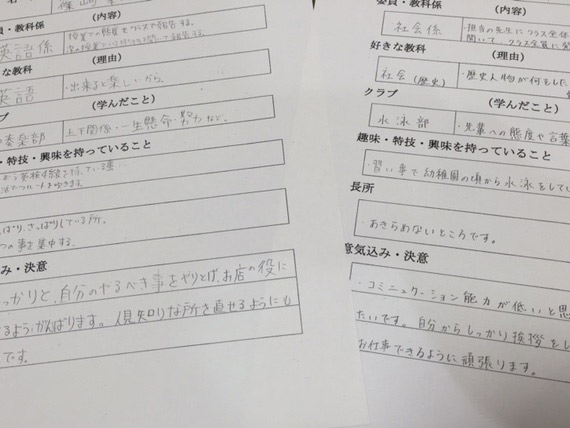 委員・教科係
(内容)
英語係
授業での態度をクラスで報告する。
好きな教科
(理由)
英語
・出来ると楽しいから。
(学んだこと)
奏楽部
上下関係・一生懸命・努力など。
・特技・興味を持っていること
さっぱりしている所。
つの事を集中する。
み・決意
っかりと、自分のやるべき事をやりとげ、お店の役に
るようにがんばります。人見知りな所を直せるようにも
です。
委員・教科係
(内容)
社会係
担当の先生にクラス全体
聞いて、クラス全員に発
好きな教科
(理由)
社会(歴史)
・歴史人物が何をした
クラブ
(学んだこと)
水泳部
・先輩への態度や言葉
趣味・特技・興味を持っていること
・習い事で幼稚園の頃から水泳をしてい
長所
・あきらめないところです。
意気込み・決意
・コミニュケーション能力が低いと思
たいです。自分からしっかり挨拶をし
お仕事できるように頑張ります。